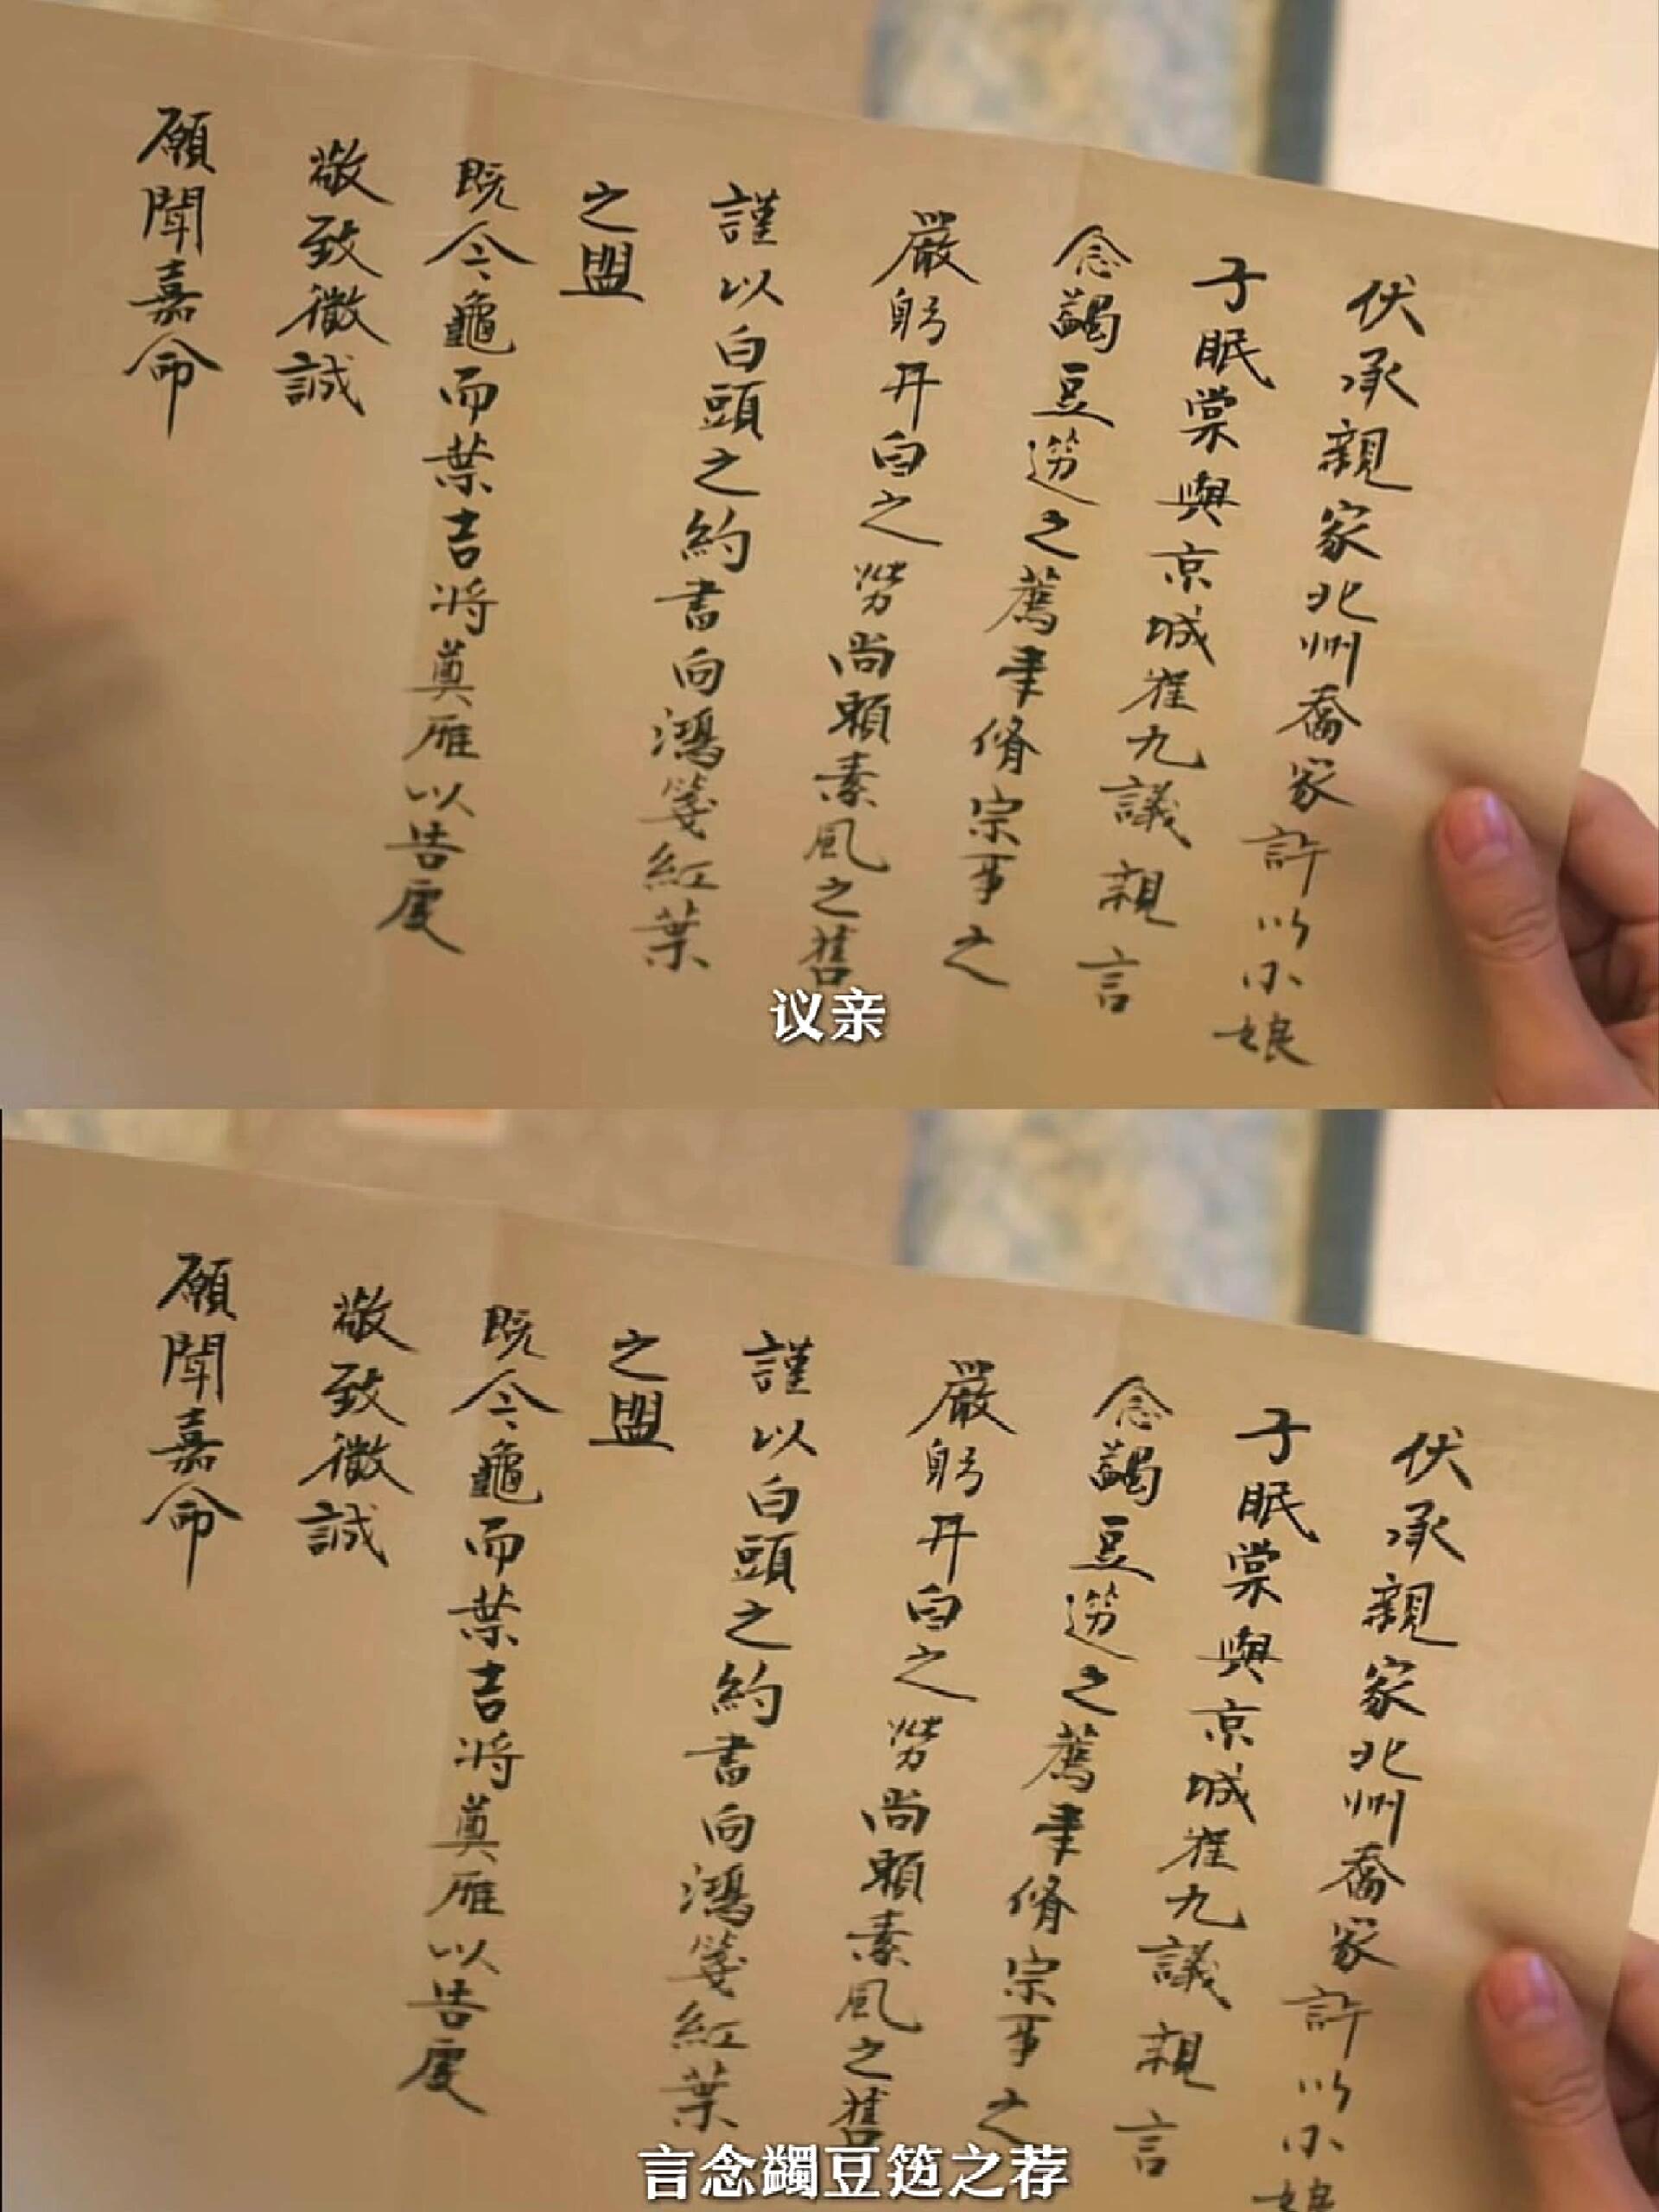 伏承親家北州喬家許以小娘
子眠棠與京城崔九議親言
念蠲豆笾之薦聿脩宗事之
嚴躬井臼之勞尚賴素風之舊
謹以白頭之約書向鴻箋紅葉
之盟
既令龜而葉吉將奠雁以告虔
敬致微誠
願聞嘉命
议亲
伏承親家北州喬家許以小娘
子眠棠與京城崔九議親言
念蠲豆笾之薦聿脩宗事之
嚴躬井臼之勞尚賴素風之舊
謹以白頭之約書向鴻箋紅葉
之盟
既令龜而葉吉將奠雁以告虔
敬致微誠
願聞嘉命
言念蠲豆笾之荐